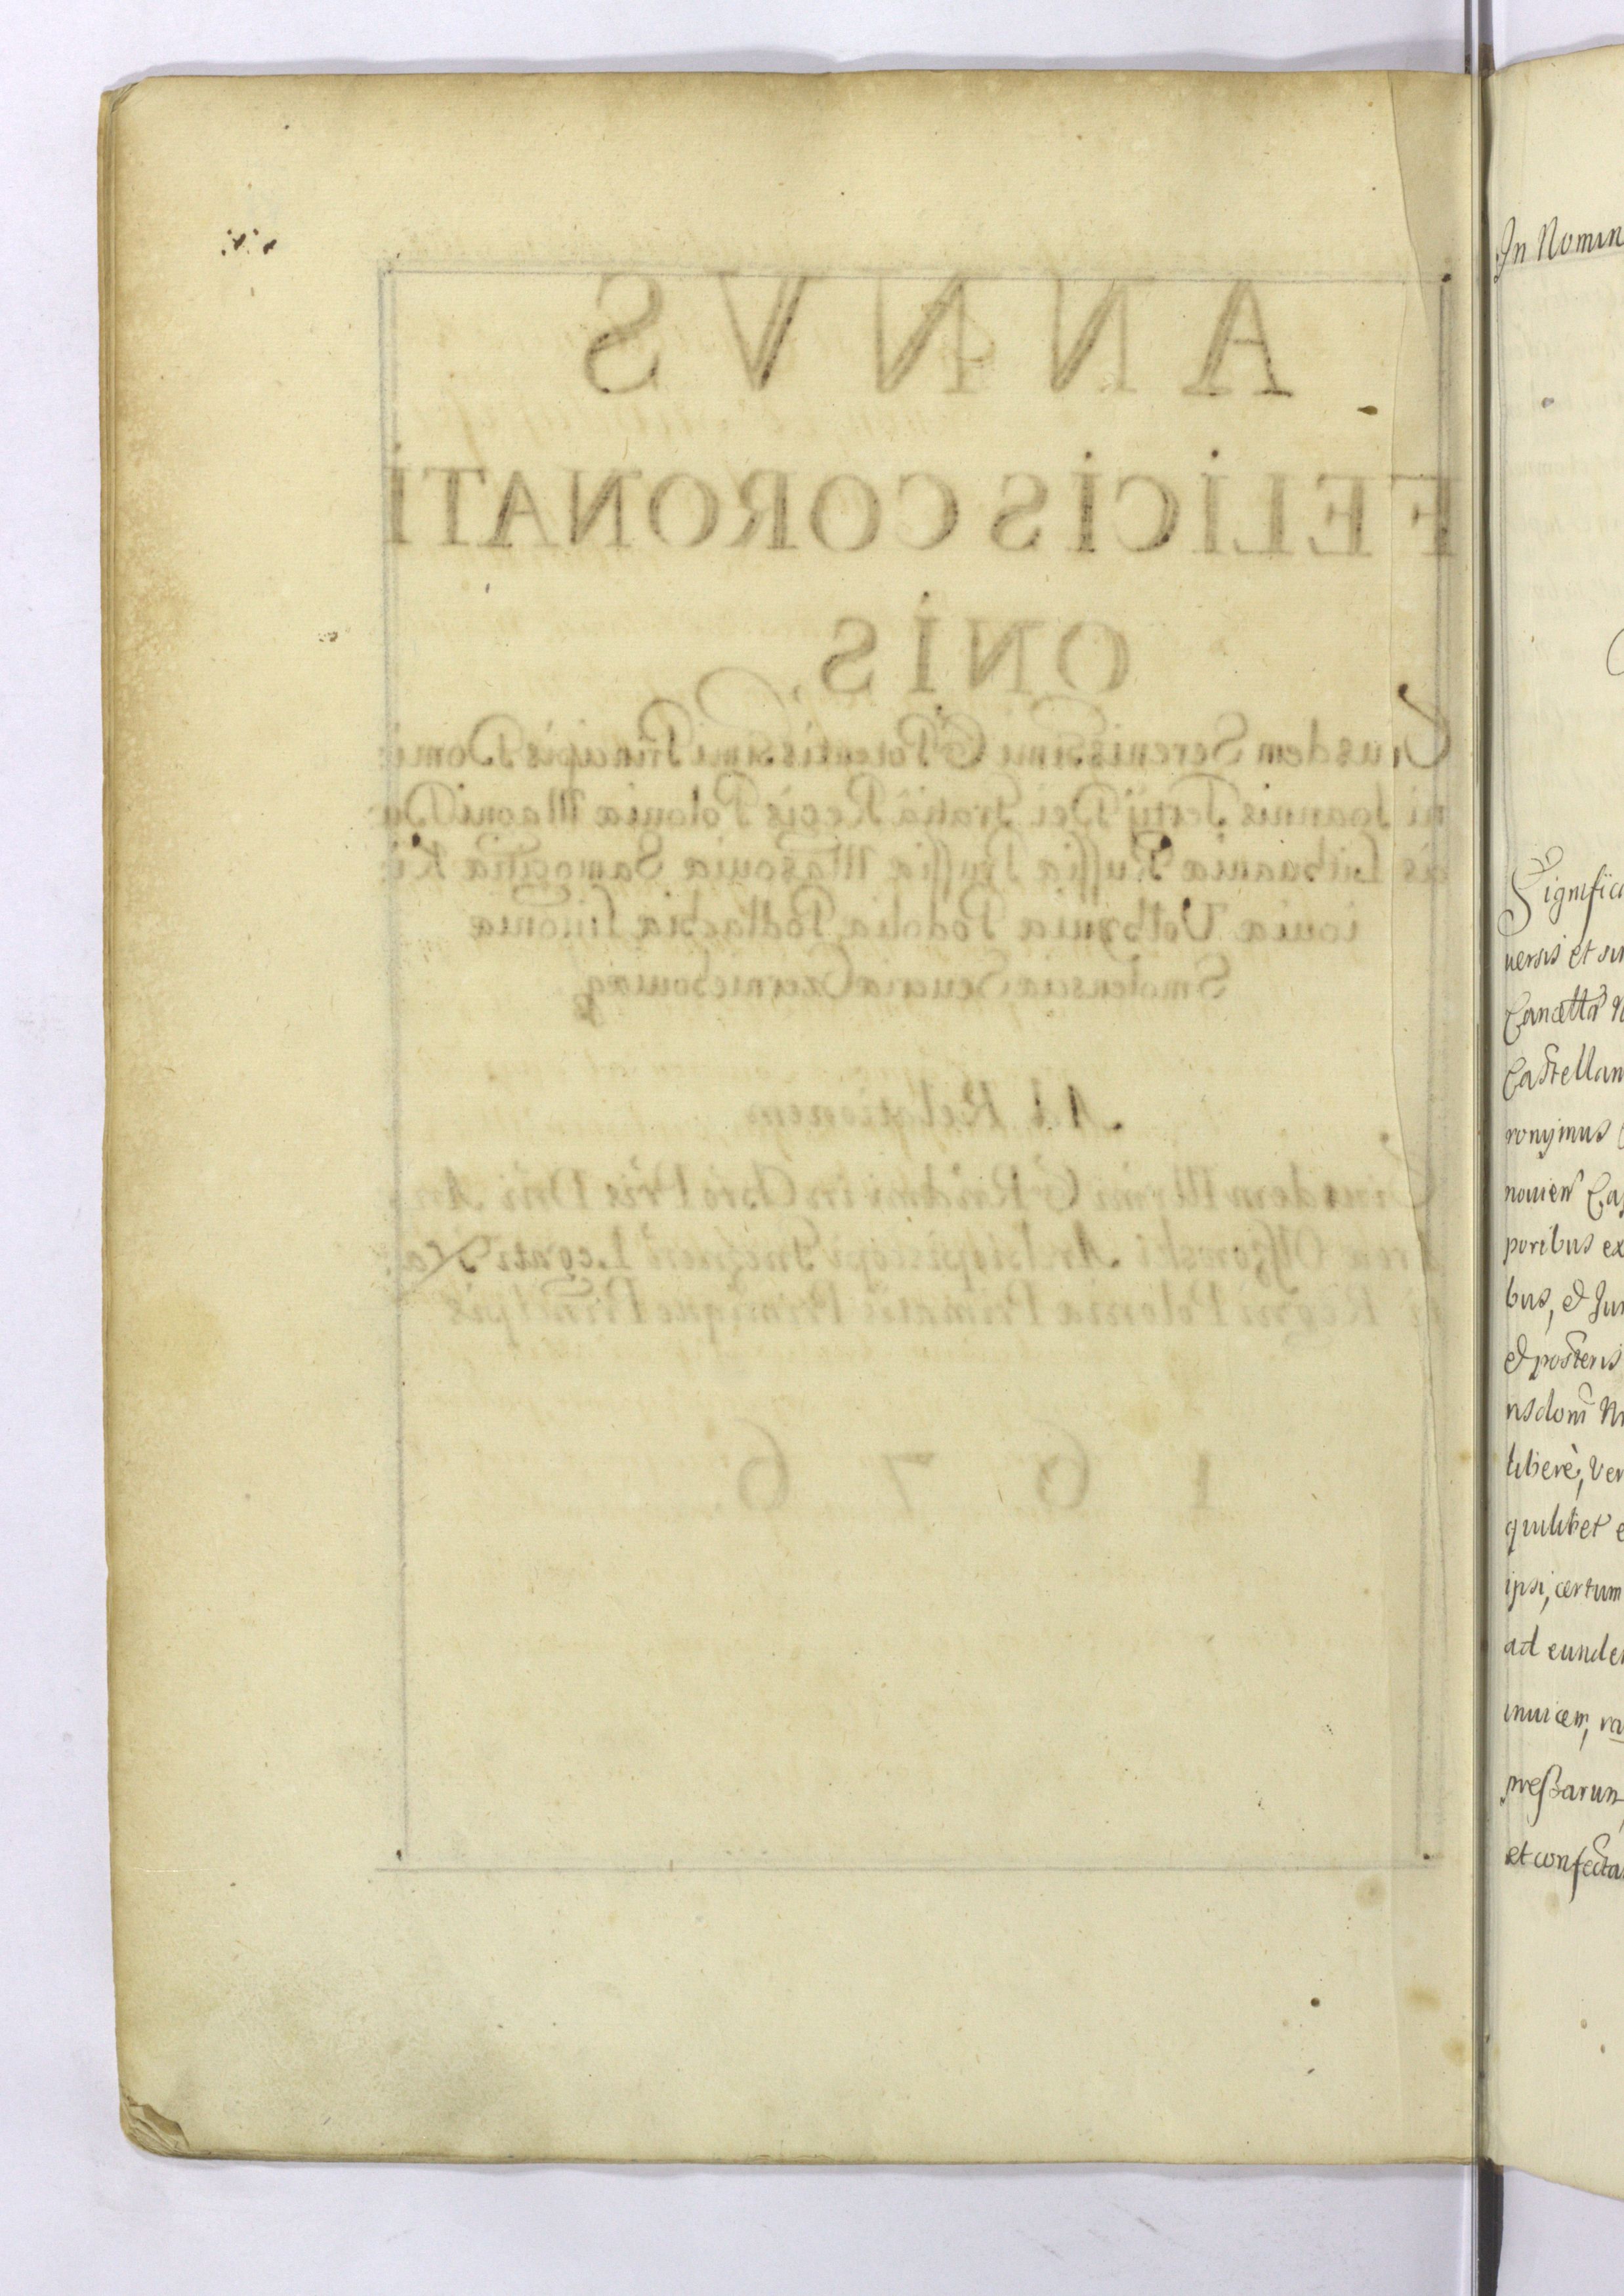 ANNVS
FELICIS CORONATI
ONIS,
Eiusdem Serenissimi & Potentissimi Principis Domi:
ni Joannis Tertij Dei Gratiâ Regis Poloniæ Magni Du:
cis Lithuaniæ Russiæ Prussiæ Masoviæ Samogitiæ Ki:
ioviæ Volhyniæ Podoliæ Podlachiæ Livoniæ
Smolensciæ Severiæ Czerniechoviæq
Ad Relationem
Eiusdem Illrmi & Rndmi in Chro Pris Dni An
drea Olszowski Archiepiscopi Gneznen Legati Na
ti Regni Poloniæ Primatis Primique Principis
1 6 7 6
In Nomin
Significa
uersis et sin
Cancella N
Castellan
ronymus
nouien Cas
poribus ex
bus, et Jur
et posteris
nsdom Nr
libere, Ver
quilibet e
ipsi, certum
ad eunde
inuicem, ra
prestarun
et confecta